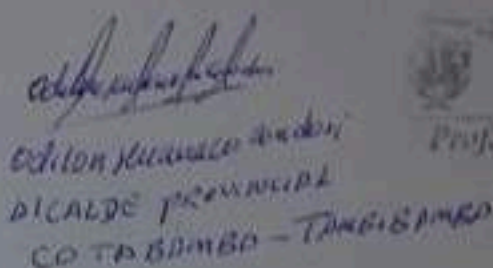 Odilon Huanaco Condori
ALCALDE PROVINCIAL
COTABAMBA - TAMBOBAMBA